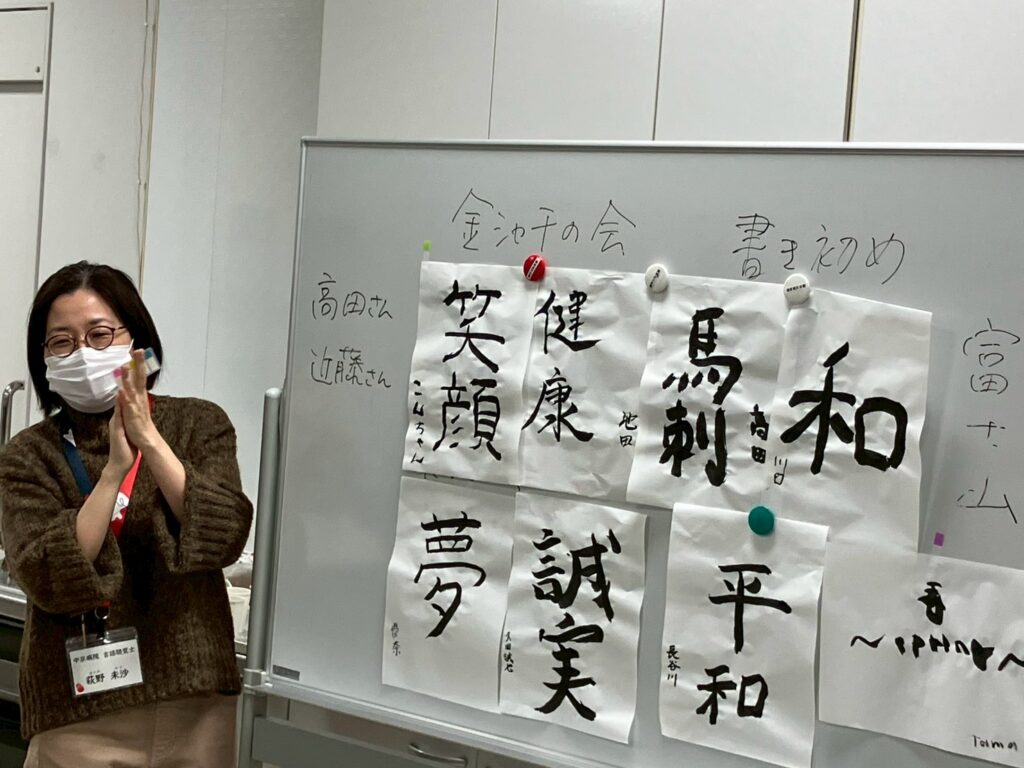 金シャチの会
書き初め
高田さん
近藤さん
富士山
笑顔
こんちゃん
健康
池田
馬刺
高田
和
川口
夢
誠実
平和
長谷川
中京病院 言語聴覚士
荻野 未沙